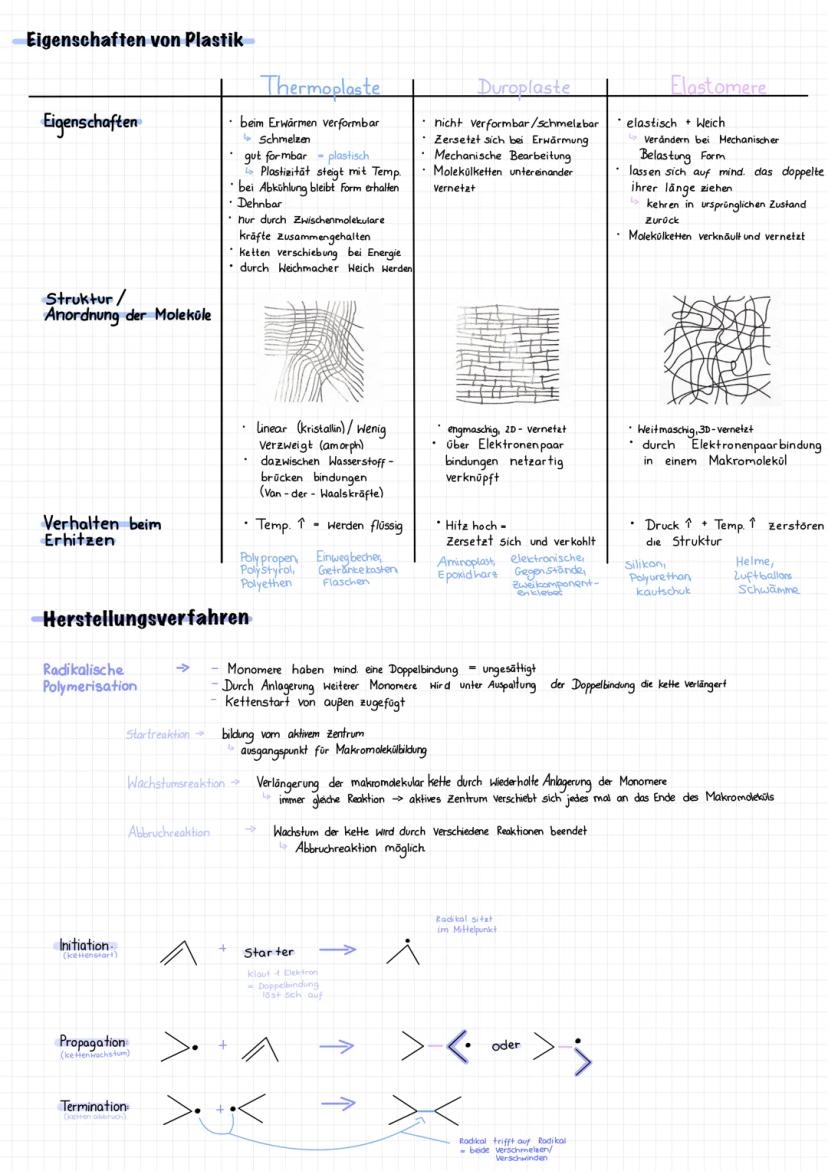 Eigenschaften von Plastik
Thermoplaste
Duroplaste
Elastomere
Eigenschaften
• beim Erwärmen verformbar
↳ Schmelzen
• gut formbar = plastisch
↳ Plastizität steigt mit Temp.
• bei Abkühlung bleibt Form erhalten
• Dehnbar
• nur durch Zwischenmolekulare
kräfte zusammengehalten
• ketten verschiebung bei Energie
• durch Weichmacher Weich werden
• nicht verformbar/schmelzbar
• Zersetzt sich bei Erwärmung
• Mechanische Bearbeitung
• Molekülketten untereinander
vernetzt
• elastisch + Weich
↳ verändern bei Mechanischer
Belastung Form
• lassen sich auf mind. das doppelte
ihrer länge ziehen
↳ kehren in ursprünglichen Zustand
zurück
• Molekülketten verknäult und vernetzt
Struktur/
Anordnung der Moleküle
• linear (kristallin)/ Wenig
verzweigt (amorph)
• dazwischen Wasserstoff-
brücken bindungen
(Van-der-Waalskräfte)
• engmaschig, 2D-vernetzt
• über Elektronenpaar
bindungen netzartig
verknüpft
• Weitmaschig, 3D-vernetzt
• durch Elektronenpaarbindung
in einem Makromolekül
Verhalten beim
Erhitzen
• Temp. ↑ = werden flüssig
• Hitz hoch =
Zersetzt sich und verkohlt
• Druck ↑ + Temp. ↑ zerstören
die Struktur
Polypropen,
Polystyrol,
Polyethen
Einwegbecher,
Getränkekasten,
Flaschen
Aminoplast,
Epoxidharz
elektronische
Gegenstände,
Zweikomponent-
enkleber
Silikon,
Polyurethan,
kautschuk
Helme,
Luftballons
Schwämme
Herstellungsverfahren
Radikalische
Polymerisation
→
- Monomere haben mind. eine Doppelbindung = ungesättigt
- Durch Anlagerung weiterer Monomere wird unter Auspaltung der Doppelbindung die kette verlängert
- Kettenstart von außen zugefügt
Startreaktion → bildung vom aktivem Zentrum
↳ ausgangspunkt für Makromolekülbildung
Wachstumsreaktion → Verlängerung der makromolekular kette durch wiederholte Anlagerung der Monomere
↳ immer gleiche Reaktion → aktives Zentrum verschiebt sich jedes mal an das Ende des Makromoleküls
Abbruchreaktion → Wachstum der kette wird durch verschiedene Reaktionen beendet
↳ Abbruchreaktion möglich
Initiation:
(kettenstart)
+ Starter →
klaut 1 Elektron
= Doppelbindung
löst sich auf
Radikal sitzt
im Mittelpunkt
Propagation:
(kettenwachstum)
+ → oder
Termination:
(kettenabbruch)
+ →
Radikal trifft auf Radikal
= beide verschmelzen/
Verschwinden